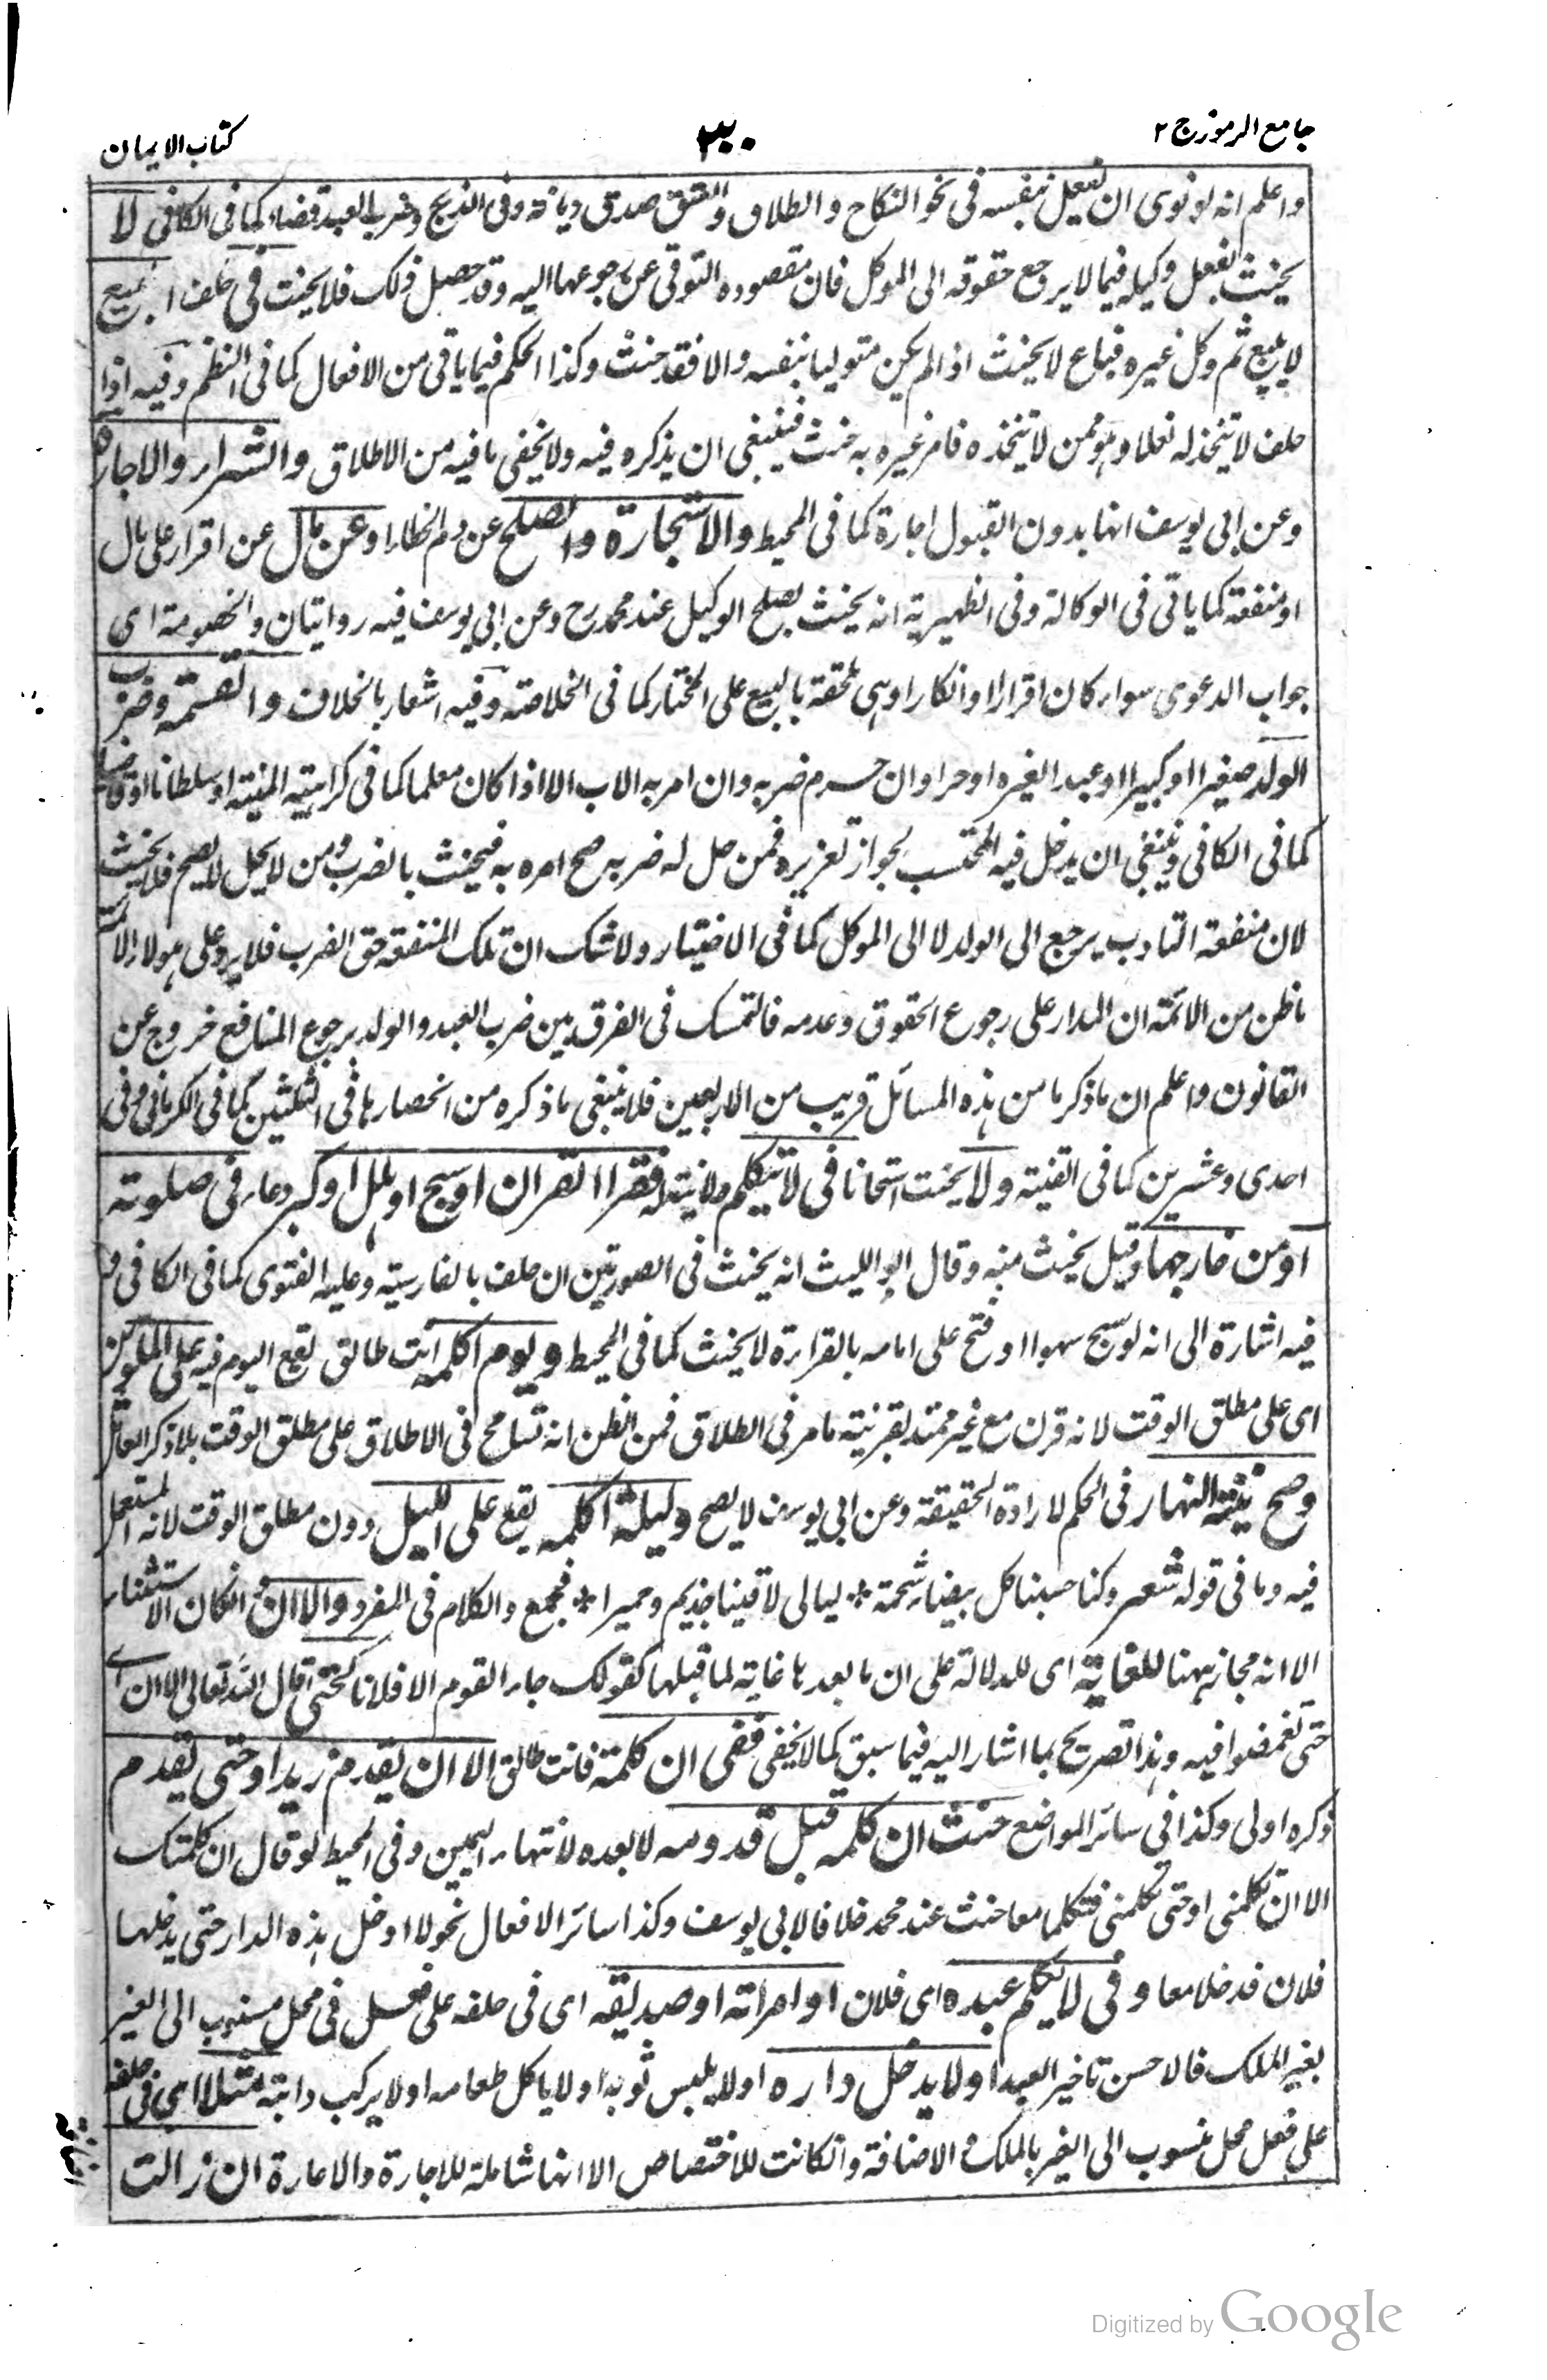 جامع الرموز ج ٢
٣٢٠
كتاب الايمان
واعلم انه لو نوى ان يفعل بنفسه فى نحو النكاح والطلاق والعتق صدق ديانة وفى الذبح وضرب العبد قضاء كما فى الكافى لا
يحنث بفعل وكيله فيما لا يرجع حقوقه الى الموكل فان مقصوده التوقى عن رجوعها اليه وقد حصل ذلك فلا يحنث فى حلف البيع
لا يبيع ثم وكل غيره فباع لا يحنث اذا لم يكن متوليا بنفسه والا فقد حنث وكذا الحكم فيما ياتى من الافعال كما فى النظم وفيه اذا
حلف لا يتخذ له نعلا وهو ممن لا يتخذه فامر غيره به حنث فينبغى ان يذكره فيه ولا يخفى ما فيه من الاطلاق والشراء والاجارة
وعن ابى يوسف انها بدون القبول اجارة كما فى المحيط والاستجارة والصلح عن دم الخطاء او عن مال عن اقرار على مال
او منفعة كما ياتى فى الوكالة وفى الظهيرية انه يحنث بصلح الوكيل عند محمد رح وعن ابى يوسف فيه روايتان والخصومة اى
جواب الدعوى سواء كان اقرارا او انكارا وهى ملحقة بالبيع على المختار كما فى الخلاصة وفيه اشعار بالخلاف والقسمة وضرب
الولد صغيرا او كبيرا او عبد الغيره او حرا وان حرم ضربه وان امر به الاب الا اذا كان معلما كما فى كراهية المنية او سلطانا او قاضيا
كما فى الكافى وينبغى ان يدخل فيه المحتسب لجواز تعزيره فمن حل له ضربه صح امره به فيحنث بالضرب ومن لا يحل لا يصح فلا يحنث
لان منفعة التادب يرجع الى الولد لا الى الموكل كما فى الاختيار ولا شك ان تلك المنفعة حق الضرب فلا يرد على هولاء الائمة
ما ظن من الائمة ان المدار على رجوع الحقوق وعدمه فالتمسك فى الفرق بين ضرب العبد والولد برجوع المنافع خروج عن
القانون واعلم ان ما ذكرنا من هذه المسائل قريب من الاربعين فلا ينبغى ما ذكره من انحصارها فى الثلثين كما فى الكرمانى وفى
احدى وعشرين كما فى القنية ولا يحنث استحسانا فى لا يتكلم ولا نية له فقرا القران او سبح او هلل او كبر دعاء فى صلوته
او من خارجها وقيل يحنث منه وقال ابو الليث انه يحنث فى الصورتين ان حلف بالفارسية وعليه الفتوى كما فى الكافى و
فيه اشارة الى انه لو سبح سهوا او فتح على امامه بالقراءة لا يحنث كما فى المحيط ويوم اكلمه انت طالق يقع اليوم فيه على الملوين
اى على مطلق الوقت لانه قرن مع غير ممتد بقرينة ما مر فى الطلاق فمن الظن انه تسامح فى الاطلاق على مطلق الوقت بلا ذكر العامل
وصح نية النهار فى الحكم لارادة الحقيقة وعن ابى يوسف لا يصح وليلة اكلمه يقع على الليل دون مطلق الوقت لانه المستعمل
فيه وما فى قوله شعر وكنا حسبنا كل بيضاء شحمة * ليالى لاقينا جذيم وحميرا * فجمع والكلام فى المفرد والا ان وان كان الاستثناء
الا انه مجاز ههنا للغاية اى للدلالة على ان ما بعدها غاية لما قبلها كقولك جاء القوم الا فلانا كحتى قال الله تعالى الا ان اى
حتى تغمضوا فيه وهذا تصريح بما اشار اليه فيما سبق كما لا يخفى ففى ان كلمته فانت طالق الا ان يقدم زيد او حتى يقدم
ذكره اولى وكذا فى سائر المواضع حنث ان كلمه قبل قدومه لا بعده لانتهاء اليمين وفى المحيط لو قال ان كلمتك
الا ان تكلمنى او حتى تكلمنى فتكلما معا حنث عند محمد خلافا لابى يوسف وكذا سائر الافعال نحو لا ادخل هذه الدار حتى يدخلها
فلان فدخلا معا وفى لا يكلم عبده اى فلان او امراته او صديقه اى فى حلفه على فعل فى محل منسوب الى الغير
بغير الملك فالاحسن تاخير العبد او لا يدخل داره او لا يلبس ثوبه او لا ياكل طعامه او لا يركب دابته مثلا اى فى حلفه
على فعل محل منسوب الى الغير بالملك والاضافة وانكانت للاختصاص الا انها شاملة للاجارة والاعارة ان زالت
Digitized by Google